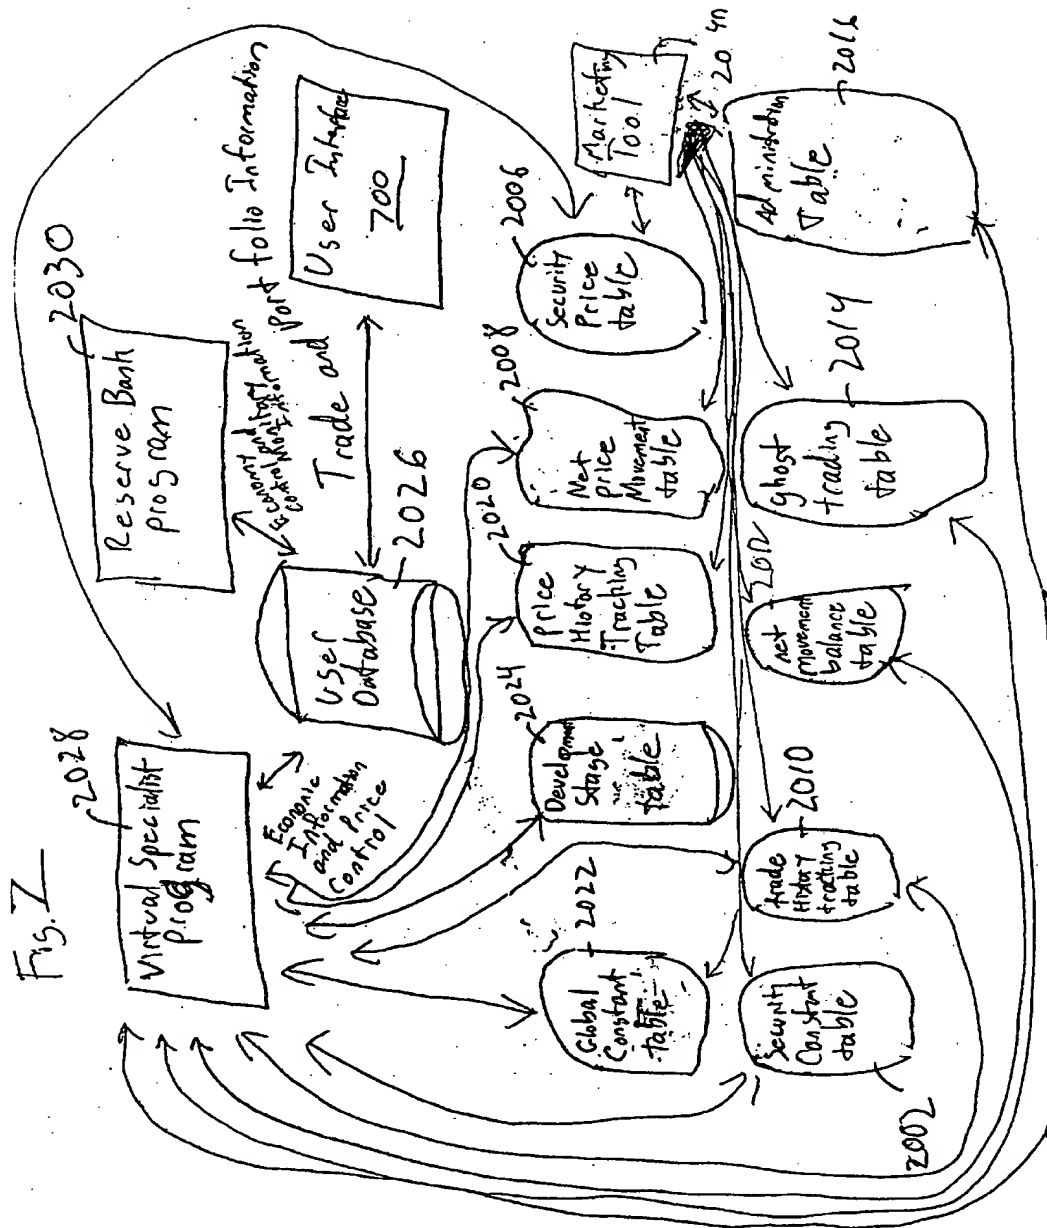 Fig. 7
2028
Virtual Specialist
Program
2030
Reserve Bank
program
Economic
Information
and Price
Control
User
Database
2026
Trade and
Portfolio Information
User Interface
700
2022
Global
Constant
table
2024
Development
Stage
table
2020
Price
History
Tracking
Table
2008
Net
Price
Movement
table
2006
Security
Price
table
Marketing
Tool
Security
Constant
table
2002
2010
trade
History
tracking
table
2012
net
movement
balance
table
2014
ghost
trading
table
2016
Administration
Table